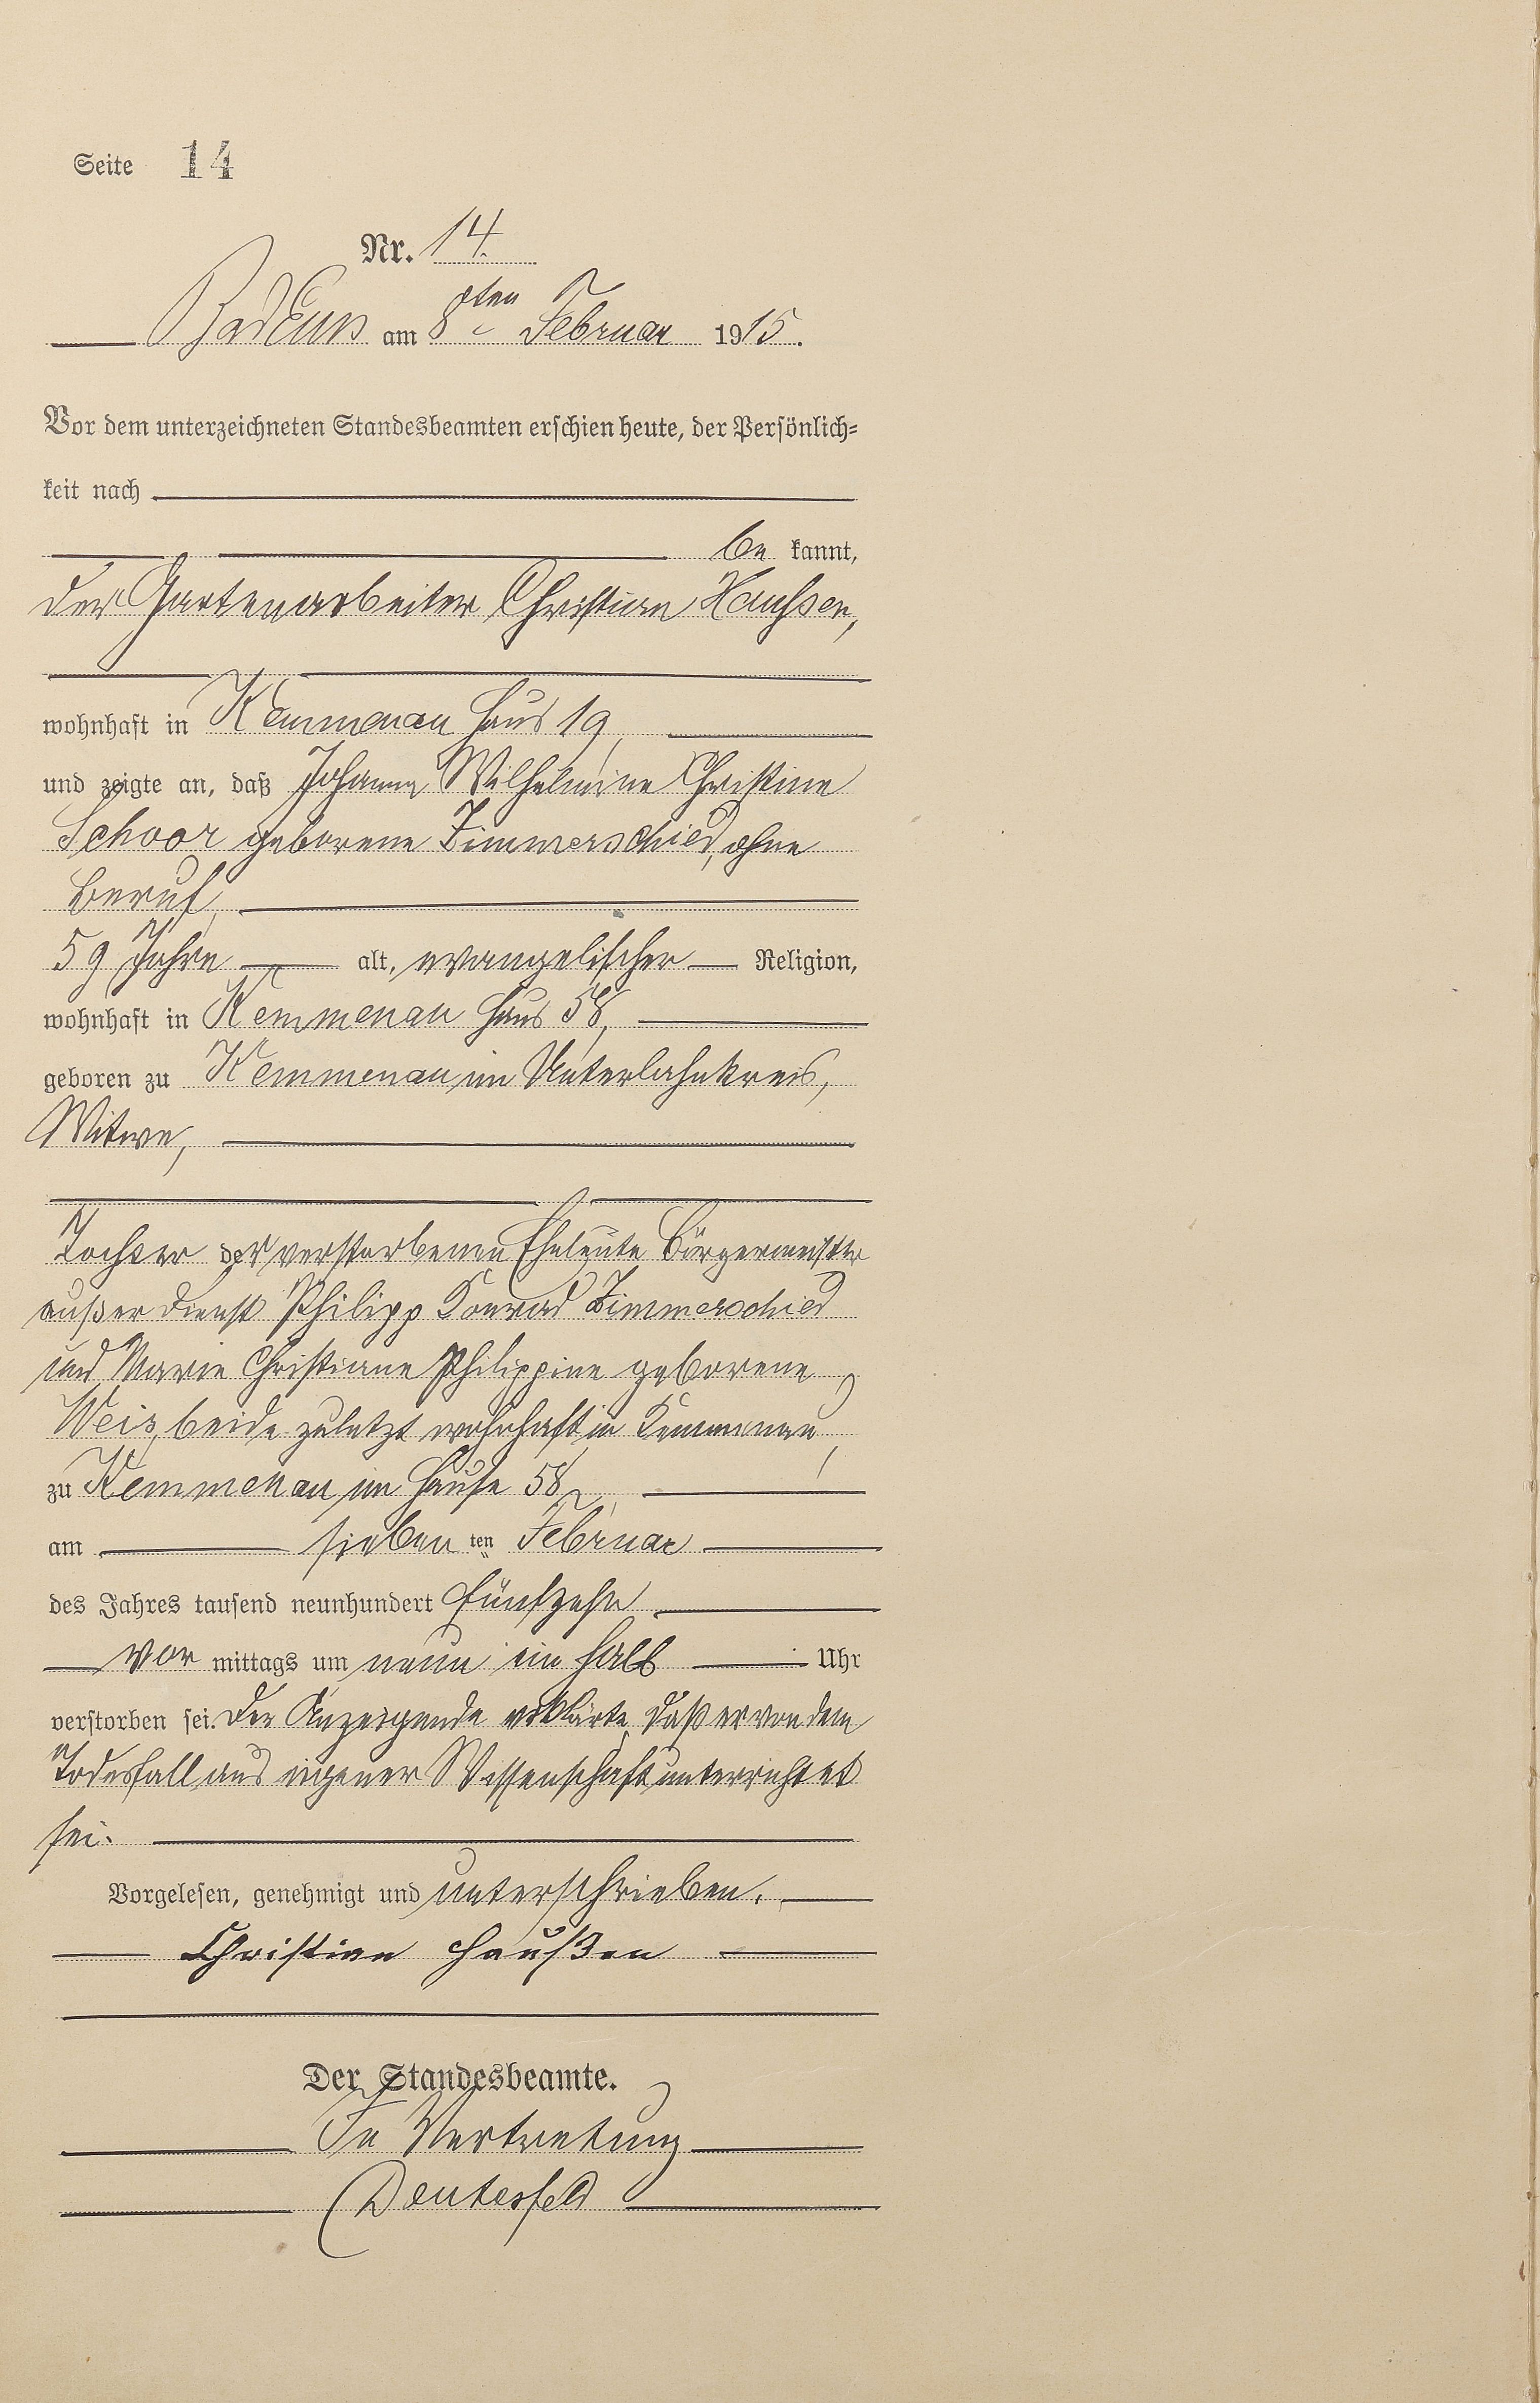 Seite 14
Nr. 14.
Bad Ems am 8ten Februar 1915.
Vor dem unterzeichneten Standesbeamten erschien heute, der Persönlich-
keit nach
be kannt,
der Gartenarbeiter Christian Haußen,
wohnhaft in Kemmenau Haus 19,
und zeigte an, daß Johanna Wilhelmine Christine
Schoor geborene Zimmerschied, ohne
Beruf,
59 Jahre alt, evangelischer Religion,
wohnhaft in Kemmenau Haus 58,
geboren zu Kemmenau im Unterlahnkreis,
Witwe,
Tochter der verstorbenen Eheleute Bürgermeister
außer Dienst Philipp Konrad Zimmerschied
und Marie Christiane Philippine geborene
Weis, beide zuletzt wohnhaft in Kemmenau,
zu Kemmenau im Hause 58,
am sieben ten Februar
des Jahres tausend neunhundert fünfzehn
vor mittags um neun ein halb Uhr
verstorben sei. Der Anzeigende erklärte, daß er von dem
Todesfall aus eigener Wissenschaft unterrichtet
sei.
Vorgelesen, genehmigt und unterschrieben.
Christian Haußen
Der Standesbeamte.
In Vertretung
Deutesfeld